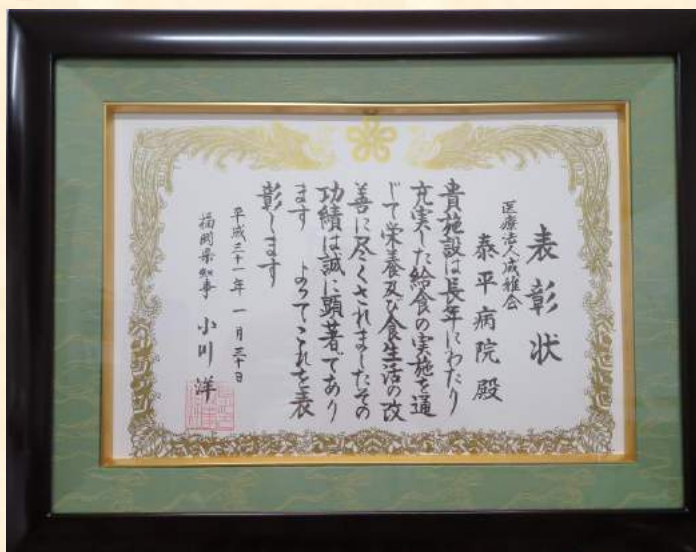 表彰状
医療法人成雅会
泰平病院殿
貴施設は長年にわたり
充実した給食の実施を通
じて栄養及び食生活の改
善に尽くされましたその
功績は誠に顕著であり
ます　よってこれを表
彰します
平成三十一年一月三十日
福岡県知事　小川洋